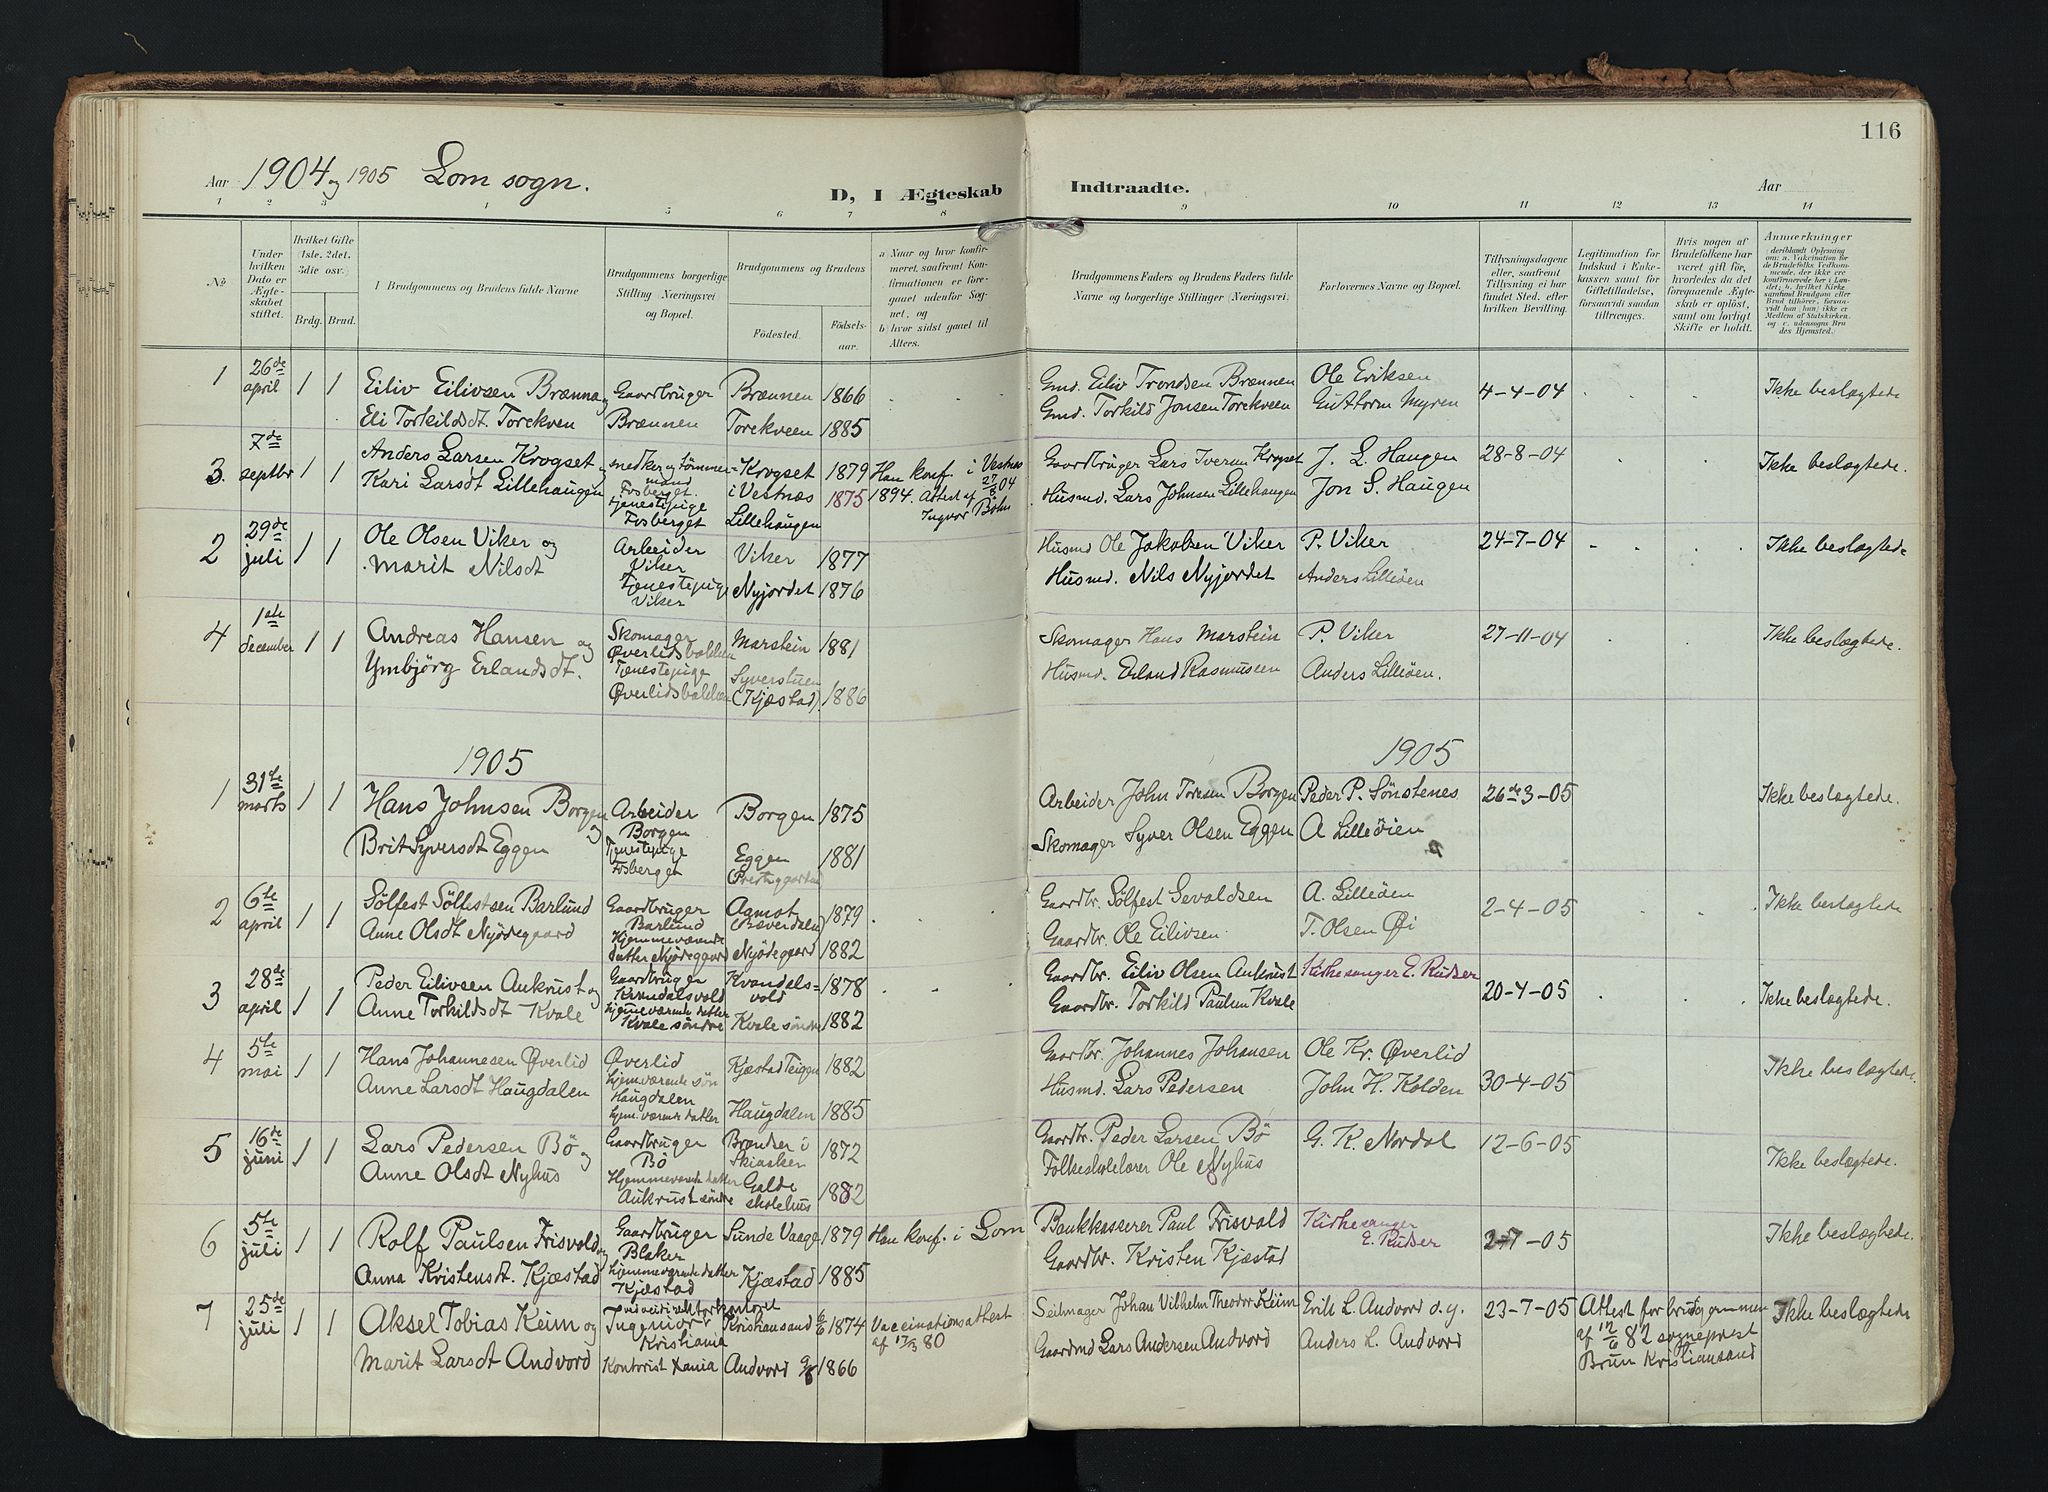 116
Aar 1904 og 1905 Lom sogn.
D, I Ægteskab Indtraadte. Aar
1 2 3 4 5 6 7 8 9 10 11 12 13 14
No.
Under hvilken Dato er Ægteskabet stiftet.
Hvilket Gifte (1ste, 2det, 3die osv.)
Brdg. Brud.
Brudgommens og Brudens fulde Navne
Brudgommens borgerlige Stilling (Næringsvei) og Bopæl.
Brudgommens og Brudens
Fødested. Fødselsaar.
a) Naar og hvor konfirmeret, saafremt Konfirmationen er foregaaet udenfor Sognet, og
b) hvor sidst gaaet til Alters.
Brudgommens Faders og Brudens Faders fulde Navne og borgerlige Stillinger (Næringsvei).
Forlovernes Navne og Bopæl.
Tillysningsdagene eller, saafremt Tillysning ei har fundet Sted, efter hvilken Bevilling.
Legitimation for Indskud i Enkekassen samt for Giftetilladelse, forsaavidt saadan tiltrænges.
Hvis nogen af Brudefolkene har været gift før, hvorledes da det foregaaende Ægteskab er opløst, samt om lovligt Skifte er holdt.
Anmærkninger
1 26de april 1 1 Eiliv Eilivsen Brænna og Gaardbruger Brænnen 1866 Gmd. Eiliv Trondsen Brænnen Ole Eriksen 4-4-04 Ikke beslægtede
Eli Torkildsdt. Torekven Brænnen Torekveen 1885 Gmd. Torkild Jonsen Torekveen Guttorm Myren
3. 7de septbr 1 1 Anders Larsen Krogset og snedker og tømmermand Fosberget Krogset i Vestnæs 1879 Han konf. i Vestnæs 1894. Attest af Ingvor Bøhn Gaardbruger Lars Iversen Krogset J. L. Haugen 28-8-04 Ikke beslægtede.
Kari Larsdt Lillehaugen tjenestepige Fosberget Lillehaugen 1875 Husmd. Lars Johnsen Lillehaugen Jon S. Haugen
2 29de juli 1 1 Ole Olsen Viker og Arbeider Viker Viker 1877 Husmd Ole Jakobsen Viker P. Viker 24-7-04 Ikke beslægtede
Marit Nilsdt Tjenestepige Viker Nyjordet 1876 Husmd. Nils Nyjordet Anders Lilleøen
4 1ste december 1 1 Andreas Hansen og Skomager Øverlidsbakken Marstein 1881 Skomager Hans Marstein P. Viker 27-11-04 Ikke beslægtede.
Ymbjörg Erlandsdt. Tjenestepige Øverlidsbakken Syverstuen (Kjæstad) 1886 Husmd. Erland Rasmussen Anders Lilleöen.
1905 1905
1 31te marts 1 1 Hans Johnsen Borgen og Arbeider Borgen Borgen 1875 Arbeider John Toresen Borgen Peder P. Sönstenes 26de 3-05 Ikke beslægtede.
Brit Syversdt Eggen Tjenestepige Fosberget Eggen (Prestegaarden) 1881 Skomager Syver Olsen Eggen A Lilleöien
2 6te april 1 1 Sølfest Sølfestsen Barlund Gaardbruger Barlund Aamot (Bæverdalen) 1879 Gaardbr. Sølfest Sevaldsen A. Lilleöen 2-4-05 Ikke beslægtede
Anne Olsdt Nyødegaard Hjemmeværende datter Nyødegaard Nyødegaard 1882 Gaardbr. Ole Eilivsen T. Olsen Øi
3 28de april 1 1 Peder Eilivsen Aukrust og Gaardbruger Kvandalsvold Kvandalsvold 1878 Gaardbr. Eiliv Olsen Aukrust Kirkesanger E. Rudser 20-4-05 Ikke beslægtede.
Anne Torkildsdt Kvale hjemmeværende datter Kvale søndre Kvale søndre 1882 Gaardbr. Torkild Paulsen Kvale
4 5te mai 1 1 Hans Johannesen Øverlid Øverlid hjemmeværende søn Kjæstad Teigen 1882 Gaardbr. Johannes Johansen Ole Kr. Øverlid 30-4-05 Ikke beslægtede.
Anne Larsdt Haugdalen Haugdalen hjem. værende datter Haugdalen 1885 Husmd. Lars Pedersen John H. Kolden
5 16de juni 1 1 Lars Pedersen Bö og Gaardbruger Bö 1872 Gaardbr. Peder Larsen Bö G. K. Nordal 12-6-05 Ikke beslægtede.
Anne Olsdt Nyhus Hjemmeværende datter Aukrust søndre Galde skolehus 1882 Folkeskolelærer Ole Nyhus
6 5te juli 1 1 Rolf Paulsen Frisvold og Gaardbruger Blaker Sunde Vaage 1879 Han konf. i Lom Bankkasserer Paul Frisvold Kirkesanger E. Rudser 2-7-05 Ikke beslægtede.
Anna Kristensdt. Kjæstad hjemmeværende datter Kjæstad Kjæstad 1885 Gaardbr. Kristen Kjæstad
7 25de juli 1 1 Aksel Tobias Keim og Ingeniør Kristiania Kristiansand 6/6 1874 Vaccinationsattest af 17/3 80 Seilmager Johan Vilhelm Theodor Keim Erik L. Andvord d.y. 23-7-05 Attest for brudgommen af 12/6 82 sogneprest Brun Kristiansand Ikke beslægtede
Marit Larsdt Andvord Kontorist Xania Andvord 9/8 1866 Gaardmd Lars Andersen Andvord Anders L. Andvord